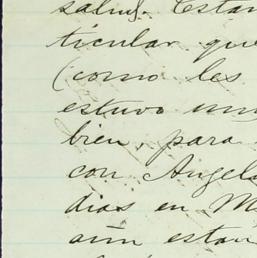 salud. Están
ticular que
(como les
estuvo
bien, para
con Angel
dias en M
aún estan